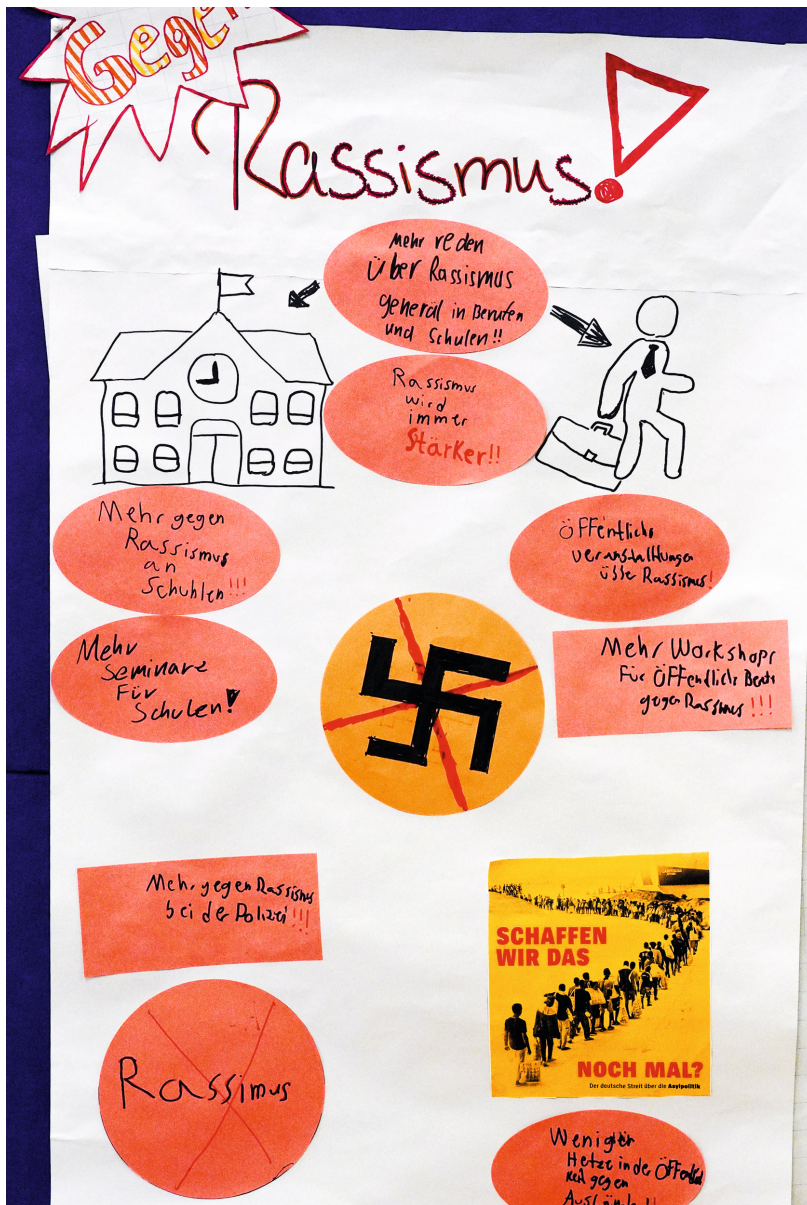 Gegen
Rassismus!
Mehr reden
über Rassismus
generäl in Berufen
und Schulen!!
Rassismus
wird
immer
Stärker!!
Mehr gegen
Rassismus
an
Schuhlen!!!
ÖFFentliche
veranstalltungen
übber Rassismus!
Mehr
Seminare
Für
Schulen!
Mehr Workshops
Für ÖFFentlich
gegen Rassmus!!!
Mehr gegen Rassismus
bei der Polizei!!!
SCHAFFEN
WIR DAS
NOCH MAL?
Der deutsche Streit über die Asylpolitik
Rassimus
Weniger
Hetze in der ÖFFentlich
keit gegen
Auslände!!